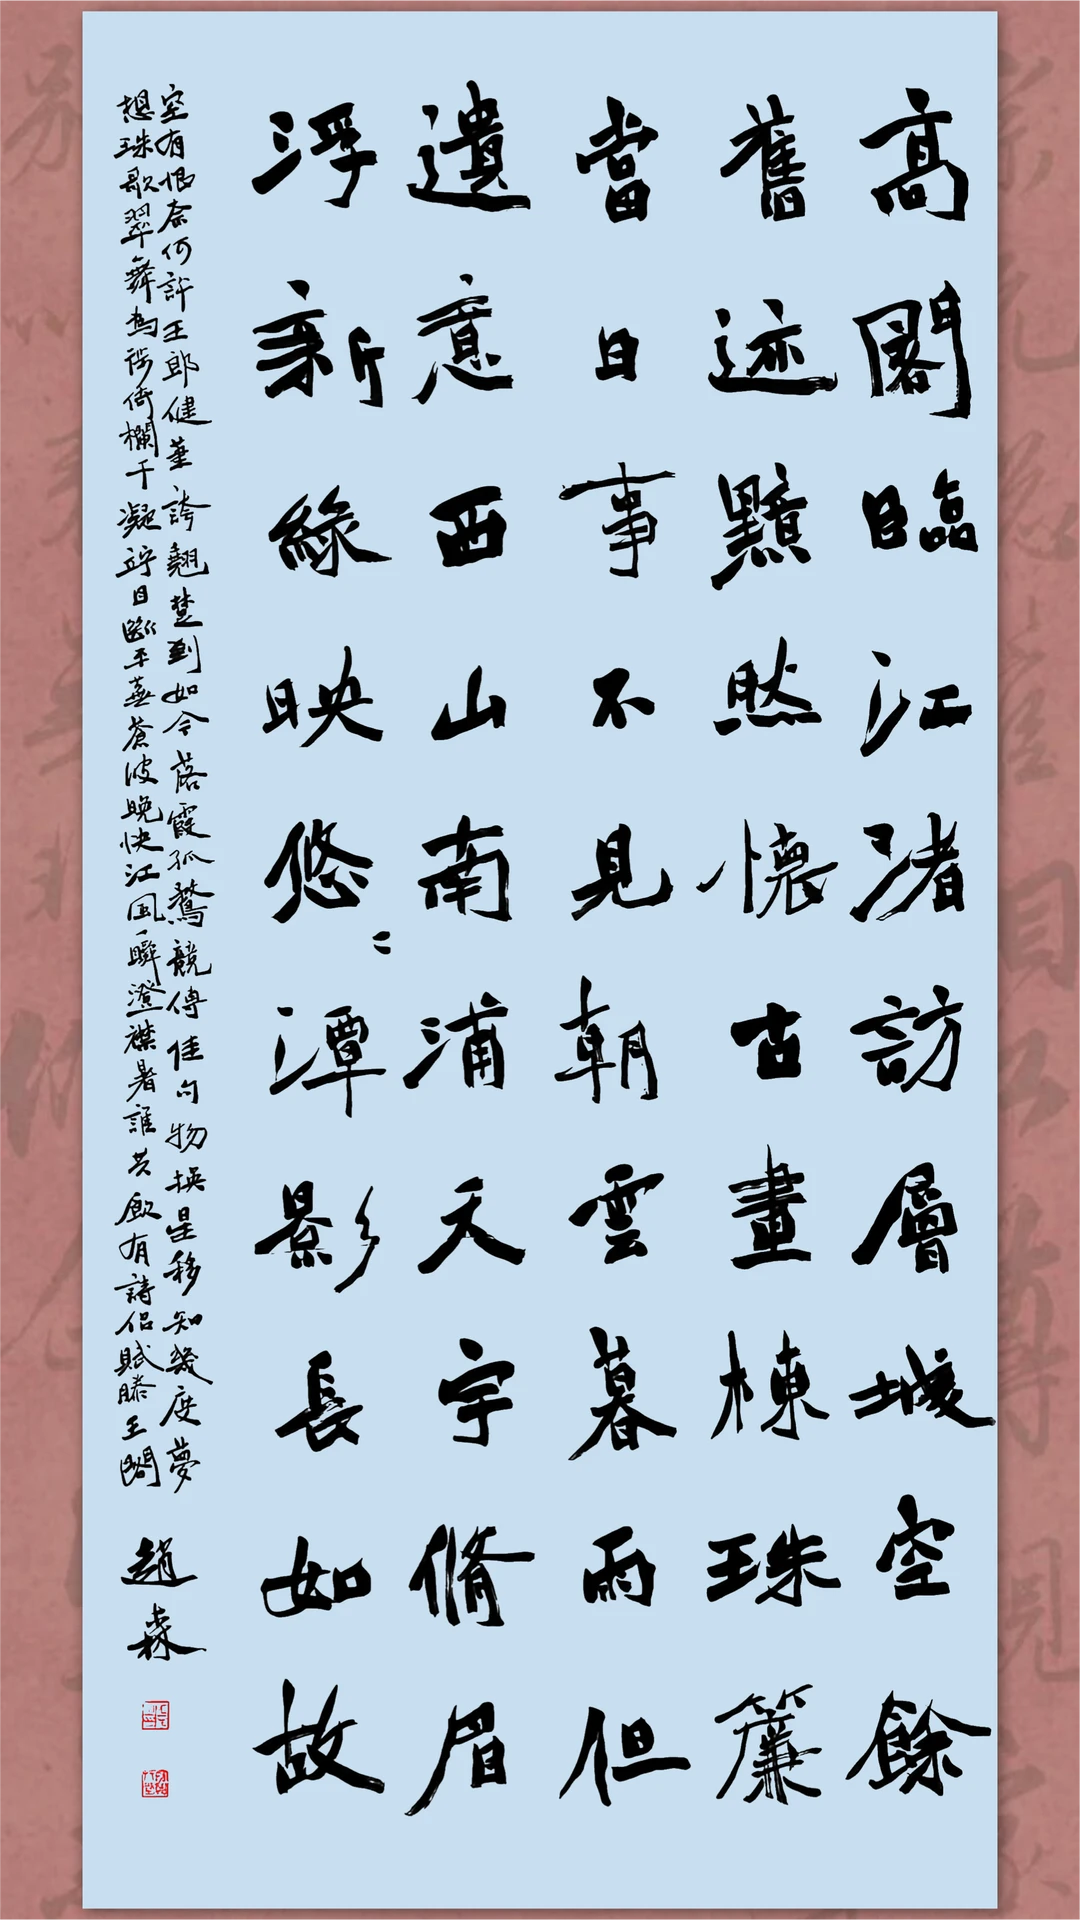 高閣臨江渚訪層城空餘
舊迹黯然懷古畫棟珠簾
當日事不見朝雲暮雨但
遺意西山南浦天宇脩眉
浮新綠映悠〻潭影長如故
空有恨奈何許王郎健筆誇翹楚到如今落霞孤鶩競傳佳句物換星移知幾度夢
想珠歌翠舞為徙倚欄干凝竚目斷平蕪蒼波晚快江風一瞬澄襟暑誰共飲有詩侶賦滕王閣
趙森